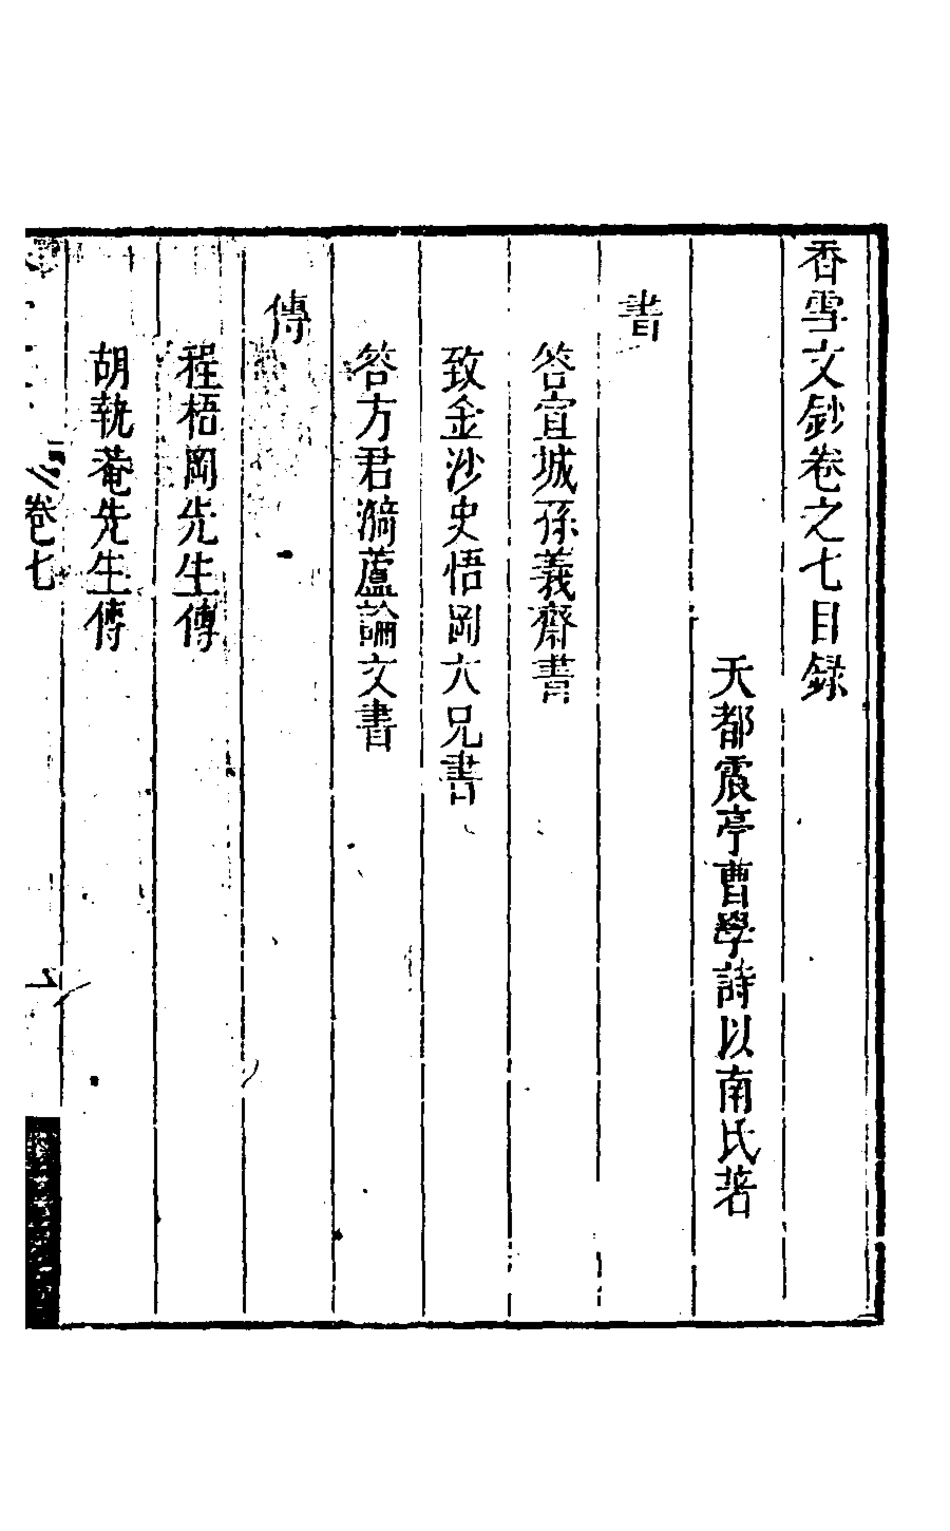 香雪文鈔卷之七目録
天都震亭曹學詩以南氏著
書
答宜城孫義齋書
致金沙史悟岡六兄書
答方君漪蘆論文書
傳
程梧岡先生傳
胡執菴先生傳
卷七